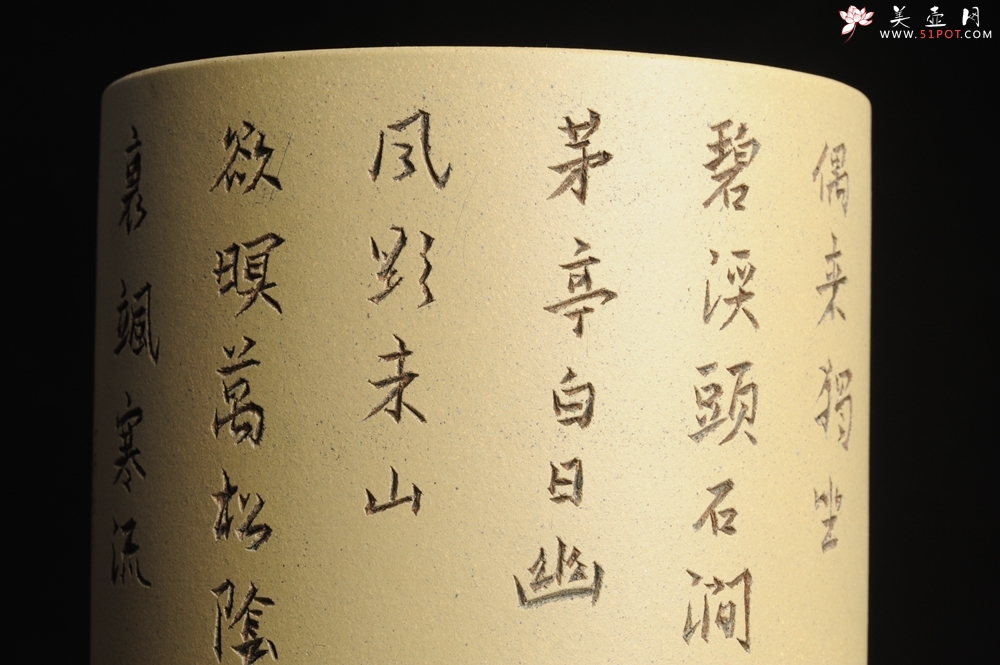 美壶网
WWW.51POT.COM
偶来獨坐
碧溪頭石澗
茅亭白日幽
风影未山
欲暝萬松陰
裏颯寒流